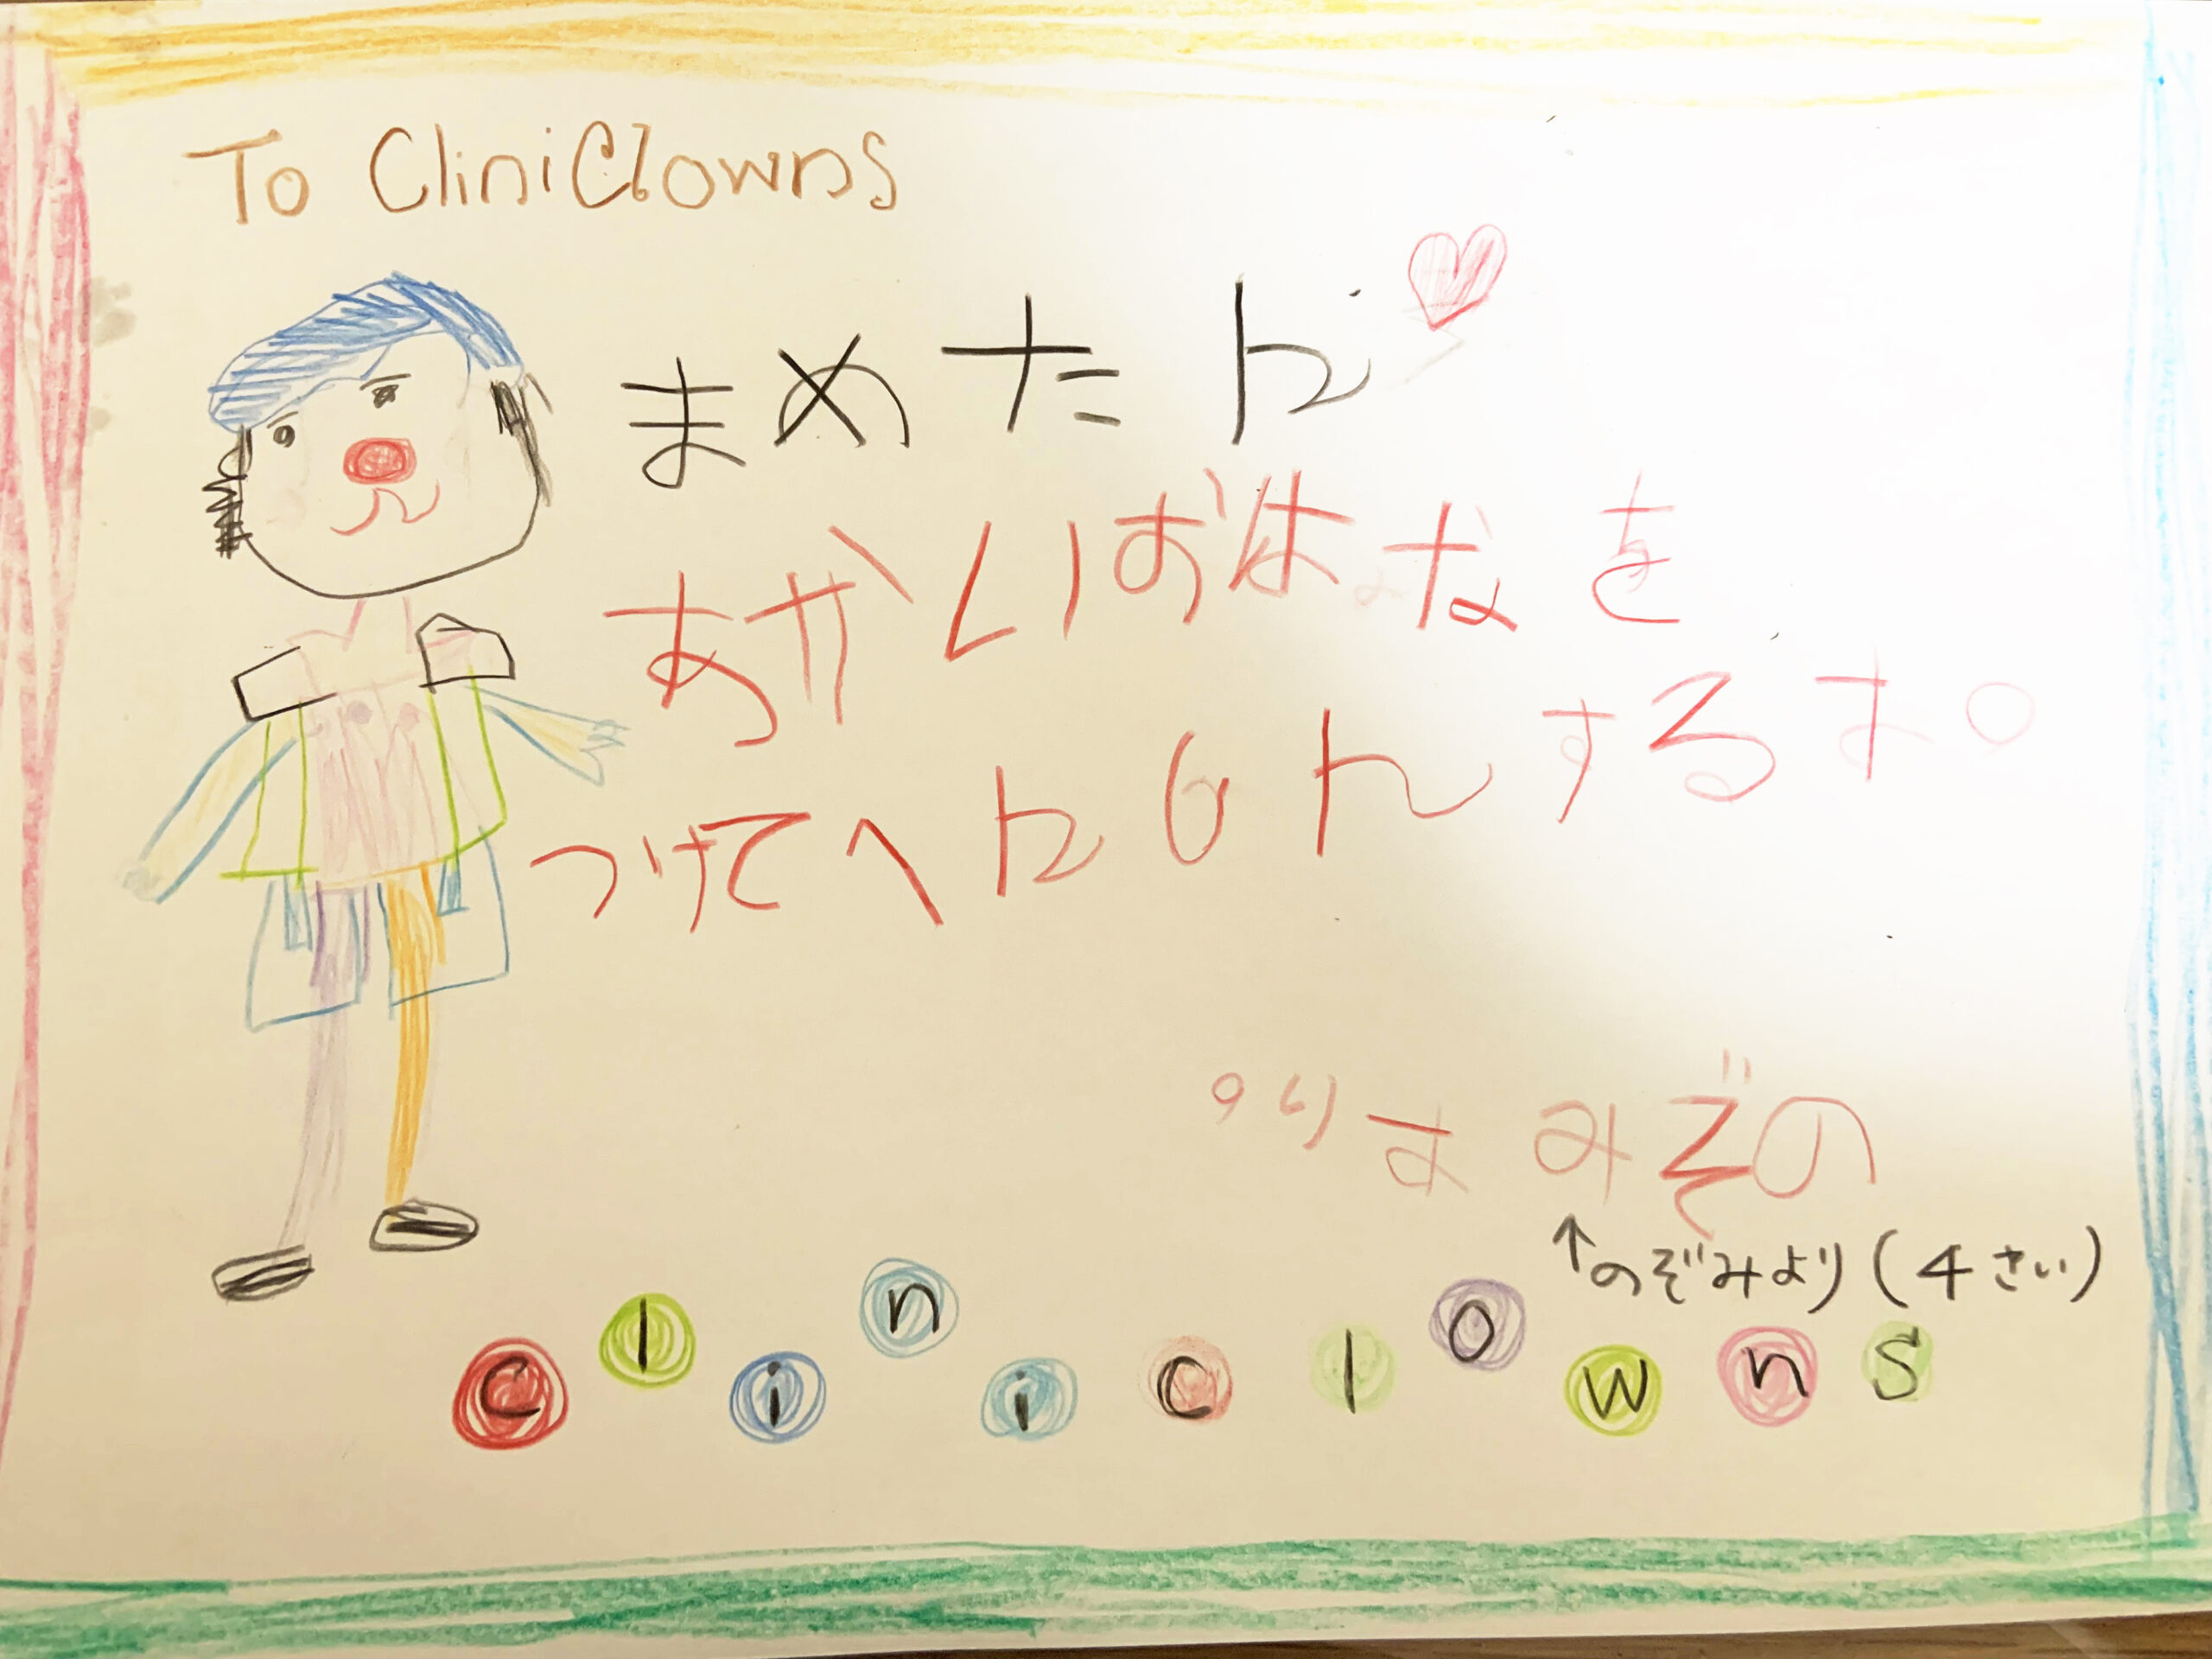 To CliniClowns
まめたん
あかいおはなを
つけてへんしんするよ。
のぞみより。
↑のぞみより(4さい)
cliniclowns